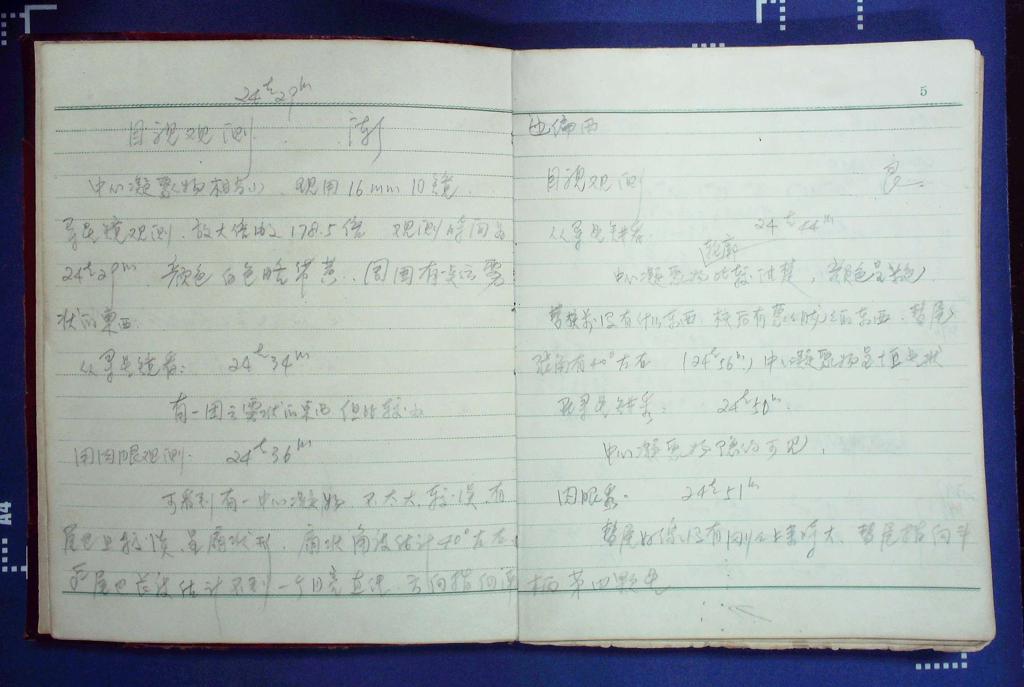 24ʰ29ᵐ
目视观测 陈
中心凝聚物相当小 现用16mm 10镜
寻星镜观测.放大倍数178.5倍 观测时间为
24ʰ29ᵐ 颜色白色略带黄.周围有一点云雾
状的东西.
从寻星镜看: 24ʰ34ᵐ
有一团云雾状的东西 但比较小
用肉眼观测. 24ʰ36ᵐ
可看到有一中心凝聚物 不太大 较淡 有
尾巴且较淡 呈扇状形. 扇状角度估计40°左右
尾巴长度估计不到一个月亮直径 方向指向
5
也偏西
目视观测 良
从寻星镜看 24ʰ44ᵐ
轮廓
中心凝聚物比较清楚, 颜色呈
没有什么东西 东西. 彗尾
张角有40°左右 (24ʰ56ᵐ) 中心凝聚物呈恒星状
寻星镜看: 24ʰ50ᵐ.
中心凝聚物隐约可见,
肉眼看. 24ʰ51ᵐ
彗尾好像没有刚才上来时大、彗尾指向斗
柄第四颗星
A4